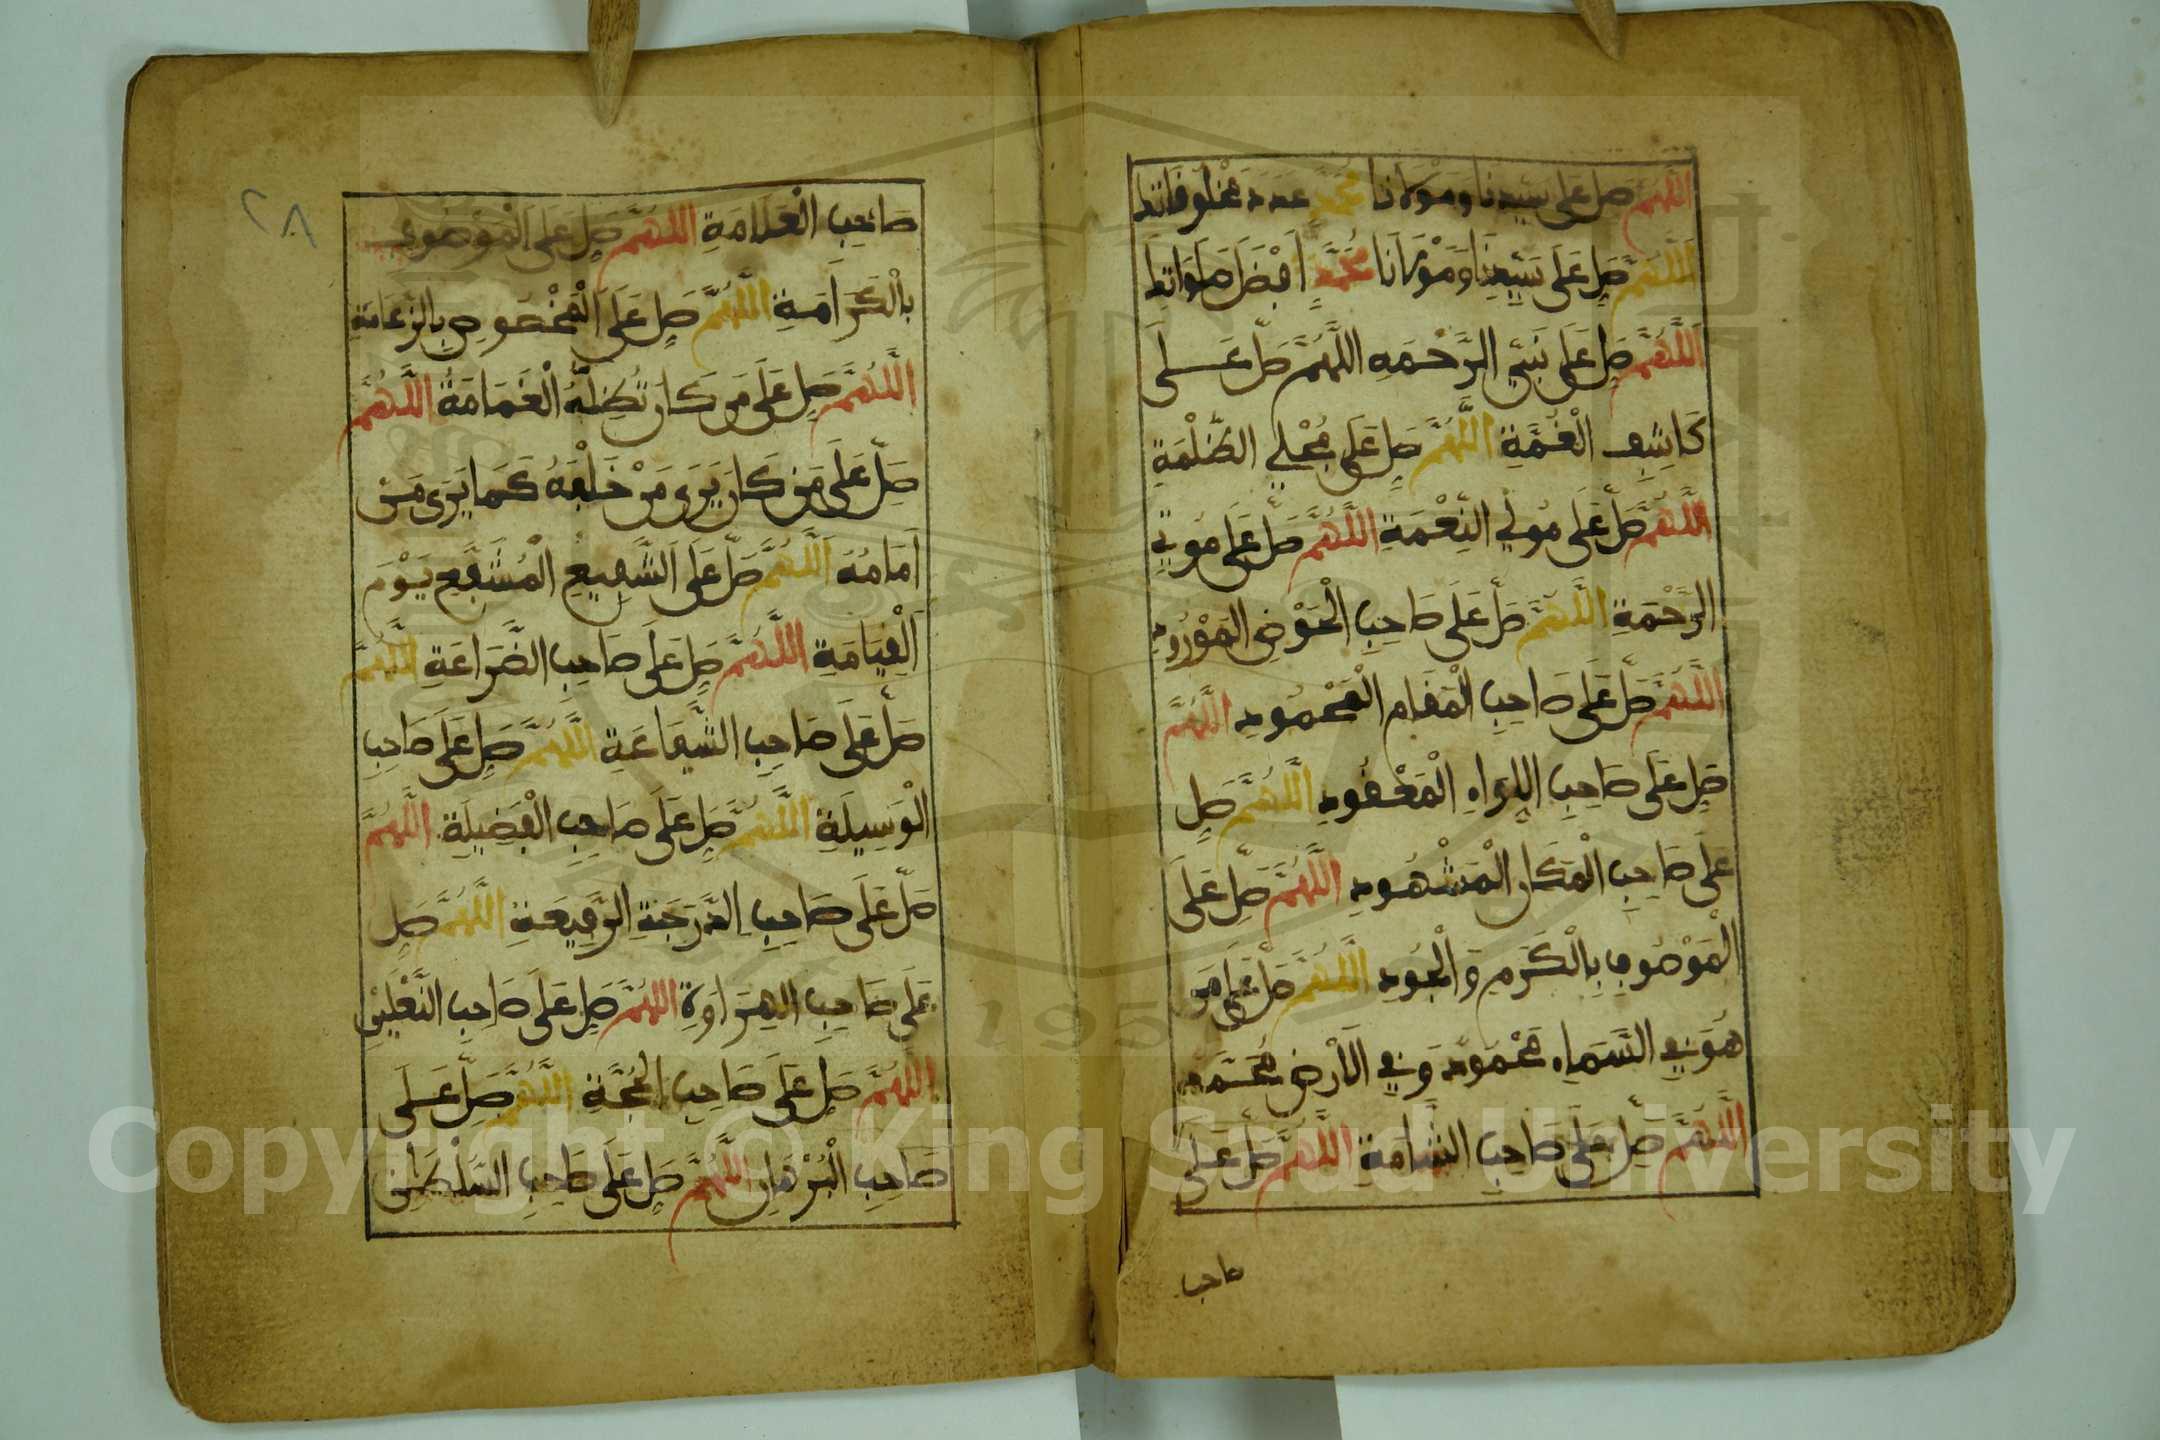 اللهم صل على سيدنا ومولانا محمد عدد مخلوقاتك
اللَّهُمَّ صَلِ عَلَى سَيِّدِنَا وَمَوْلَانَا مُحَمَّدٍ أَفْضَلَ صَلَوَاتِكَ
اللَّهُمَّ صَلِ عَلَى نَبِيِّ الرَّحْمَه اللَّهُمَّ صَلِّ عَلَى
كَاشِفِ الْغُمَّةِ اللَّهُمَّ صَلِ عَلَى مُجْلِي الظُّلْمَةِ
اللَّهُمَّ صَلِّ عَلَى مُولِي النِّعْمَةِ اللَّهُمَّ صَلِّ عَلَى مُوتِي
الرَّحْمَةِ اللَّهُمَّ صَلِّ عَلَى صَاحِبِ الْحَوْضِ الْمَوْرُودِ
اللَّهُمَّ صَلِّ عَلَى صَاحِبِ الْمَقَامِ الْمَحْمُودِ اللَّهُمَّ
صَلِ عَلَى صَاحِبِ اللِّوَاءِ الْمَعْقُودِ اللَّهُمَّ صَلِ
عَلَى صَاحِبِ الْمَكَانِ الْمَشْهُودِ اللَّهُمَّ صَلِّ عَلَى
الْمَوْصُوفِ بِالْكَرَمِ وَالْجُودِ اللَّهُمَّ صَلِّ عَلَى مَن
هُوَ فِي السَّمَاءِ مَحْمُودٌ وَفِي الْأَرْضِ مُحَمَّدٌ
اللَّهُمَّ صَلِّ عَلَى صَاحِبِ الشَّامَةِ اللَّهُمَّ صَلِّ عَلَى
صاحب
٢٨
صَاحِبِ الْعَلَامَةِ اللَّهُمَّ صَلِ عَلَى الْمَوْصُوفِ
بِالْكَرَامَةِ اللَّهُمَّ صَلِ عَلَى الْمَخْصُوصِ بِالزَّعَامَةِ
اللَّهُمَّ صَلِ عَلَى مَن كَانَ تُظِلُّهُ الْغَمَامَةُ اللَّهُمَّ
صَلِّ عَلَى مَن كَانَ يَرَى مَنْ خَلْفَهُ كَمَا يَرَى مَن
أَمَامَهُ اللَّهُمَّ صَلِّ عَلَى الشَّفِيعِ الْمُشَفَّعِ يَوْمَ
الْقِيَامَةِ اللَّهُمَّ صَلِ عَلَى صَاحِبِ الضَّرَاعَةِ اللَّهُمَّ
صَلِّ عَلَى صَاحِبِ الشَّفَاعَةِ اللَّهُمَّ صَلِ عَلَى صَاحِبِ
الْوَسِيلَةِ اللَّهُمَّ صَلِ عَلَى صَاحِبِ الْفَضِيلَةِ اللَّهُمَّ
صَلِّ عَلَى صَاحِبِ الدَّرَجَةِ الرَّفِيعَةِ اللَّهُمَّ صَلِ
عَلَى صَاحِبِ الْهِرَاوَةِ اللَّهُمَّ صَلِ عَلَى صَاحِبِ النَّعْلَيْنِ
اللَّهُمَّ صَلِ عَلَى صَاحِبِ الْحُجَّةِ اللَّهُمَّ صَلِّ عَلَى
صَاحِبِ الْبُرْهَانِ اللَّهُمَّ صَلِ عَلَى صَاحِبِ السُّلْطَانِ
Copyright © King Saud University
195